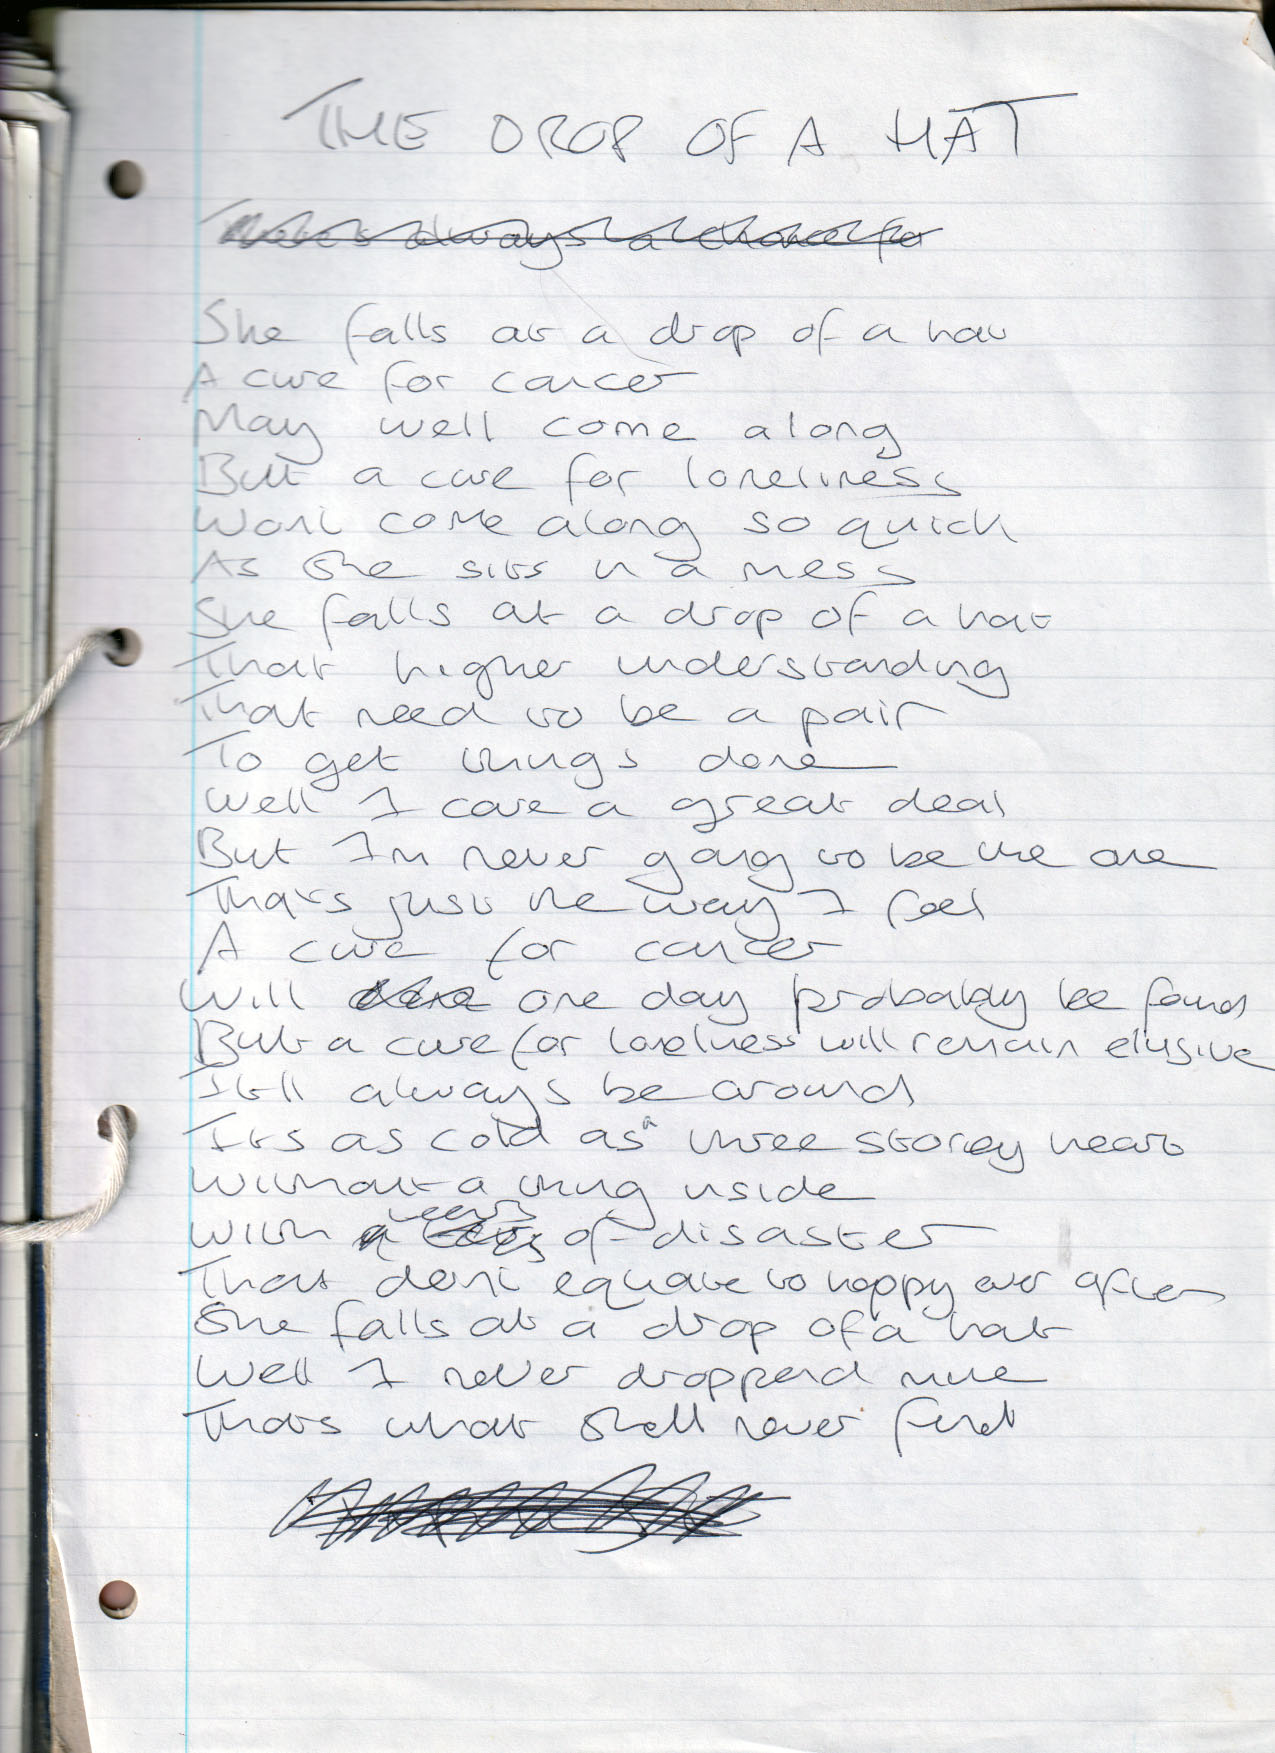 THE DROP OF A HAT
There's always a chance for
She falls at a drop of a hat
A cure for cancer
May well come along
But a cure for loneliness
Wont come along so quick
As she sits in a mess
She falls at a drop of a hat
That higher understanding
That need to be a pair
To get things done
Well I care a great deal
But Im never going to be the one
Thats just the way I feel
A cure for cancer
Will one day probably be found
But a cure for loneliness will remain elusive
Itll always be around
Its as cold as a three storey heart
Without a thing inside
With years of disaster
That dont equate to happy ever after
She falls at a drop of a hat
Well I never dropped mine
Thats what shell never find